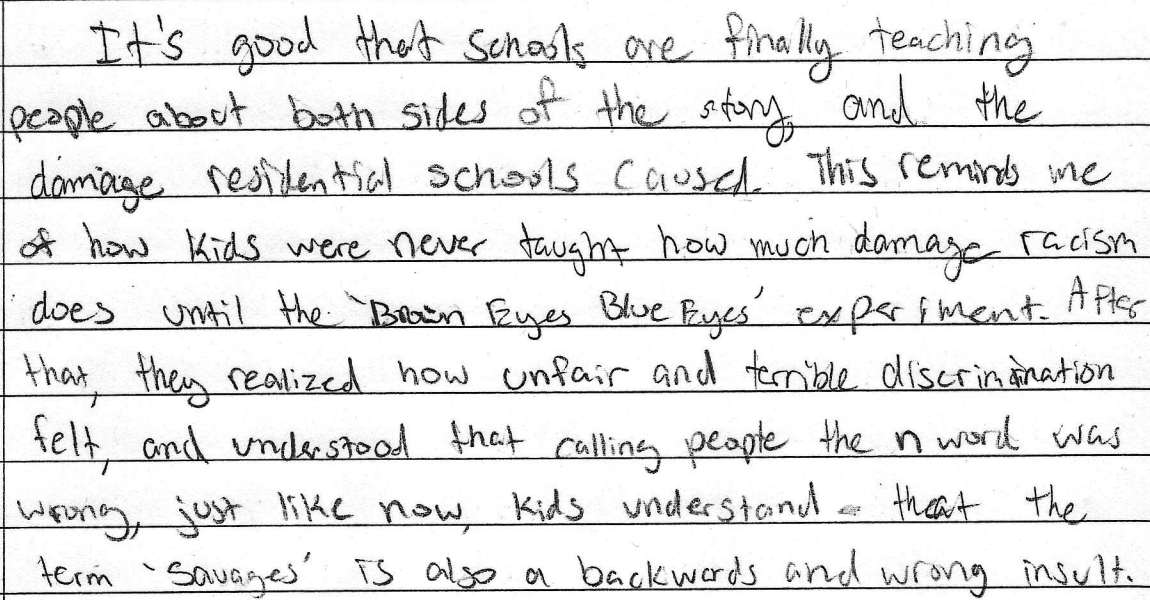 It's good that schools are finally teaching
people about both sides of the story, and the
damage residential schools caused. This reminds me
of how kids were never taught how much damage racism
does until the 'Brown Eyes Blue Eyes' experiment. After
that, they realized how unfair and terrible discrimination
felt, and understood that calling people the n word was
wrong, just like now, kids understand that the
term 'savages' is also a backwards and wrong insult.